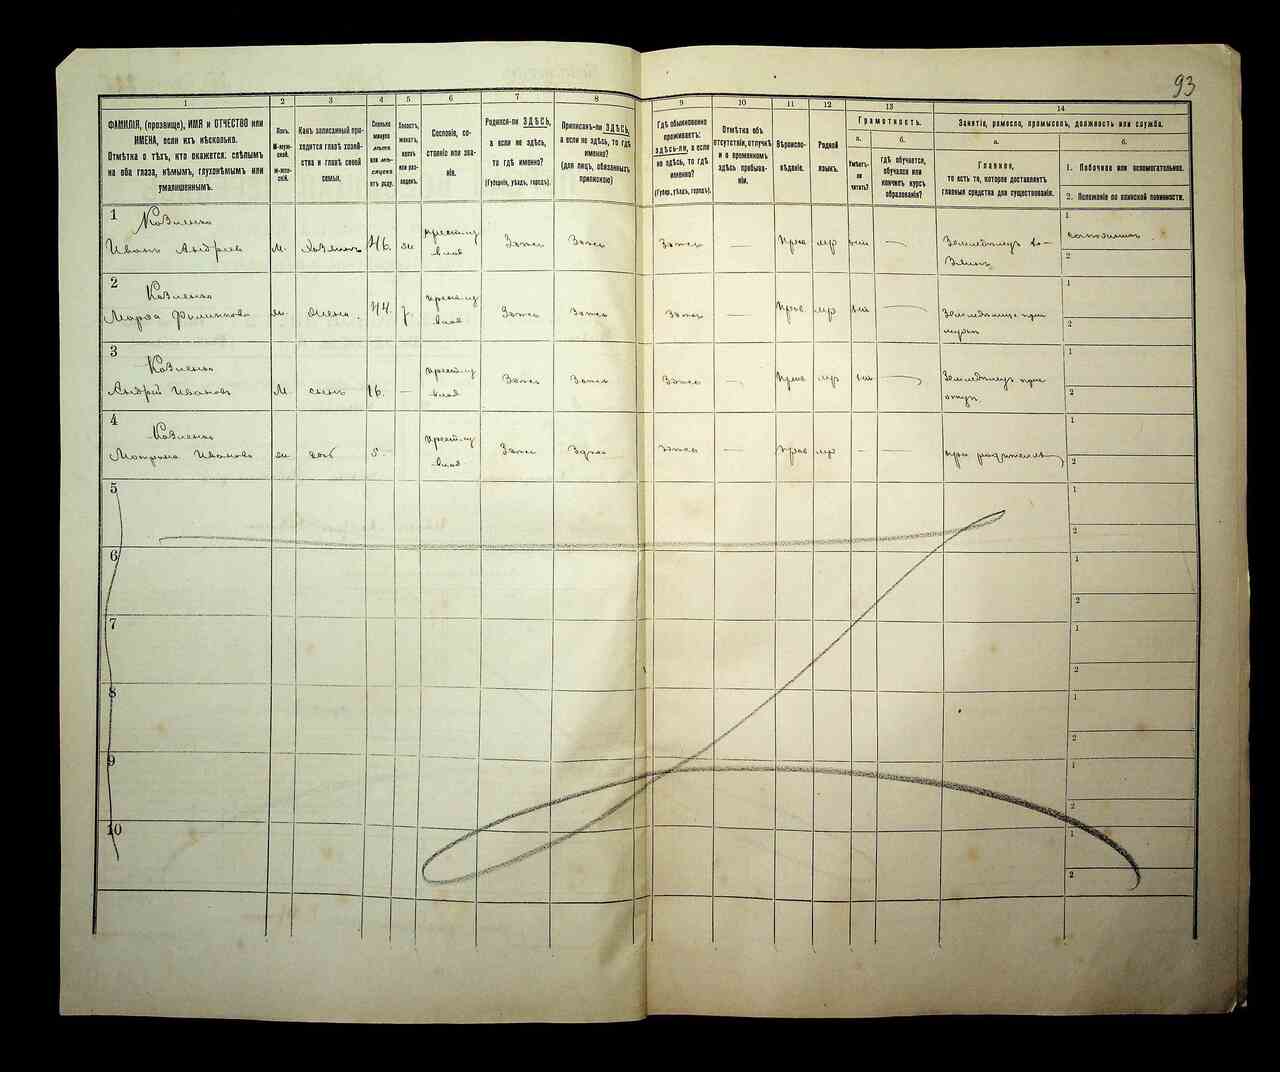 93
1
2
3
4
5
6
7
8
9
10
11
12
13
14
ФАМИЛІЯ, (прозвище), ИМЯ и ОТЧЕСТВО или
ИМЕНА, если ихъ нѣсколько.
Отмѣтка о тѣхъ, кто окажется: слѣпымъ
на оба глаза, нѣмымъ, глухонѣмымъ или
умалишеннымъ.
Полъ.
М-муж-
ской.
Ж-жен-
скій.
Какъ записанный при-
ходится главѣ хозяй-
ства и главѣ своей
семьи.
Сколько
минуло
лѣтъ
или мѣ-
сяцевъ
отъ роду.
Холостъ,
женатъ,
вдовъ
или раз-
веденъ.
Сословіе, со-
стояніе или зва-
ніе.
Родился-ли ЗДѢСЬ,
а если не здѣсь,
то гдѣ именно?
(Губернія, уѣздъ, городъ).
Приписанъ-ли ЗДѢСЬ,
а если не здѣсь, то гдѣ
именно?
(для лицъ, обязанныхъ
припискою)
Гдѣ обыкновенно
проживаетъ:
ЗДѢСЬ-ли, а если
не здѣсь, то гдѣ
именно?
(Губер., уѣздъ, городъ).
Отмѣтка объ
отсутствіи, отлучкѣ
и о временномъ
здѣсь пребыва-
ніи.
Вѣроиспо-
вѣданіе.
Родной
языкъ.
Грамотность.
а.
Умѣетъ-
ли
читать?
б.
гдѣ обучается,
обучался или
кончилъ курсъ
образованія?
Занятіе, ремесло, промыселъ, должность или служба.
а.
Главное,
то есть то, которое доставляетъ
главныя средства для существованія.
б.
1. Побочное или вспомогательное.
2. Положеніе по воинской повинности.
1
Козленко
Иванъ Андреев
М.
Хозяинъ
46.
ж
Здѣсь
Здѣсь
Здѣсь
—
Прав
мр
—
Земледѣлецъ хо-
зяинъ
1
2
2
Козленко
Марфа Филиппова
ж.
жена.
44.
Здѣсь
Здѣсь
Здѣсь
—
Прав
мр
—
1
2
3
Козленко
Андрей Ивановъ
М.
сынъ
16.
—
Здѣсь
Здѣсь
Здѣсь
—
Прав
мр
—
1
2
4
Козленко
Мотрона Иванова
ж
доч
5.
Здѣсь
Здѣсь
Здѣсь
—
Прав
мр
—
—
при родителяхъ
1
2
5
1
2
6
1
2
7
1
2
8
1
2
9
1
2
10
1
2